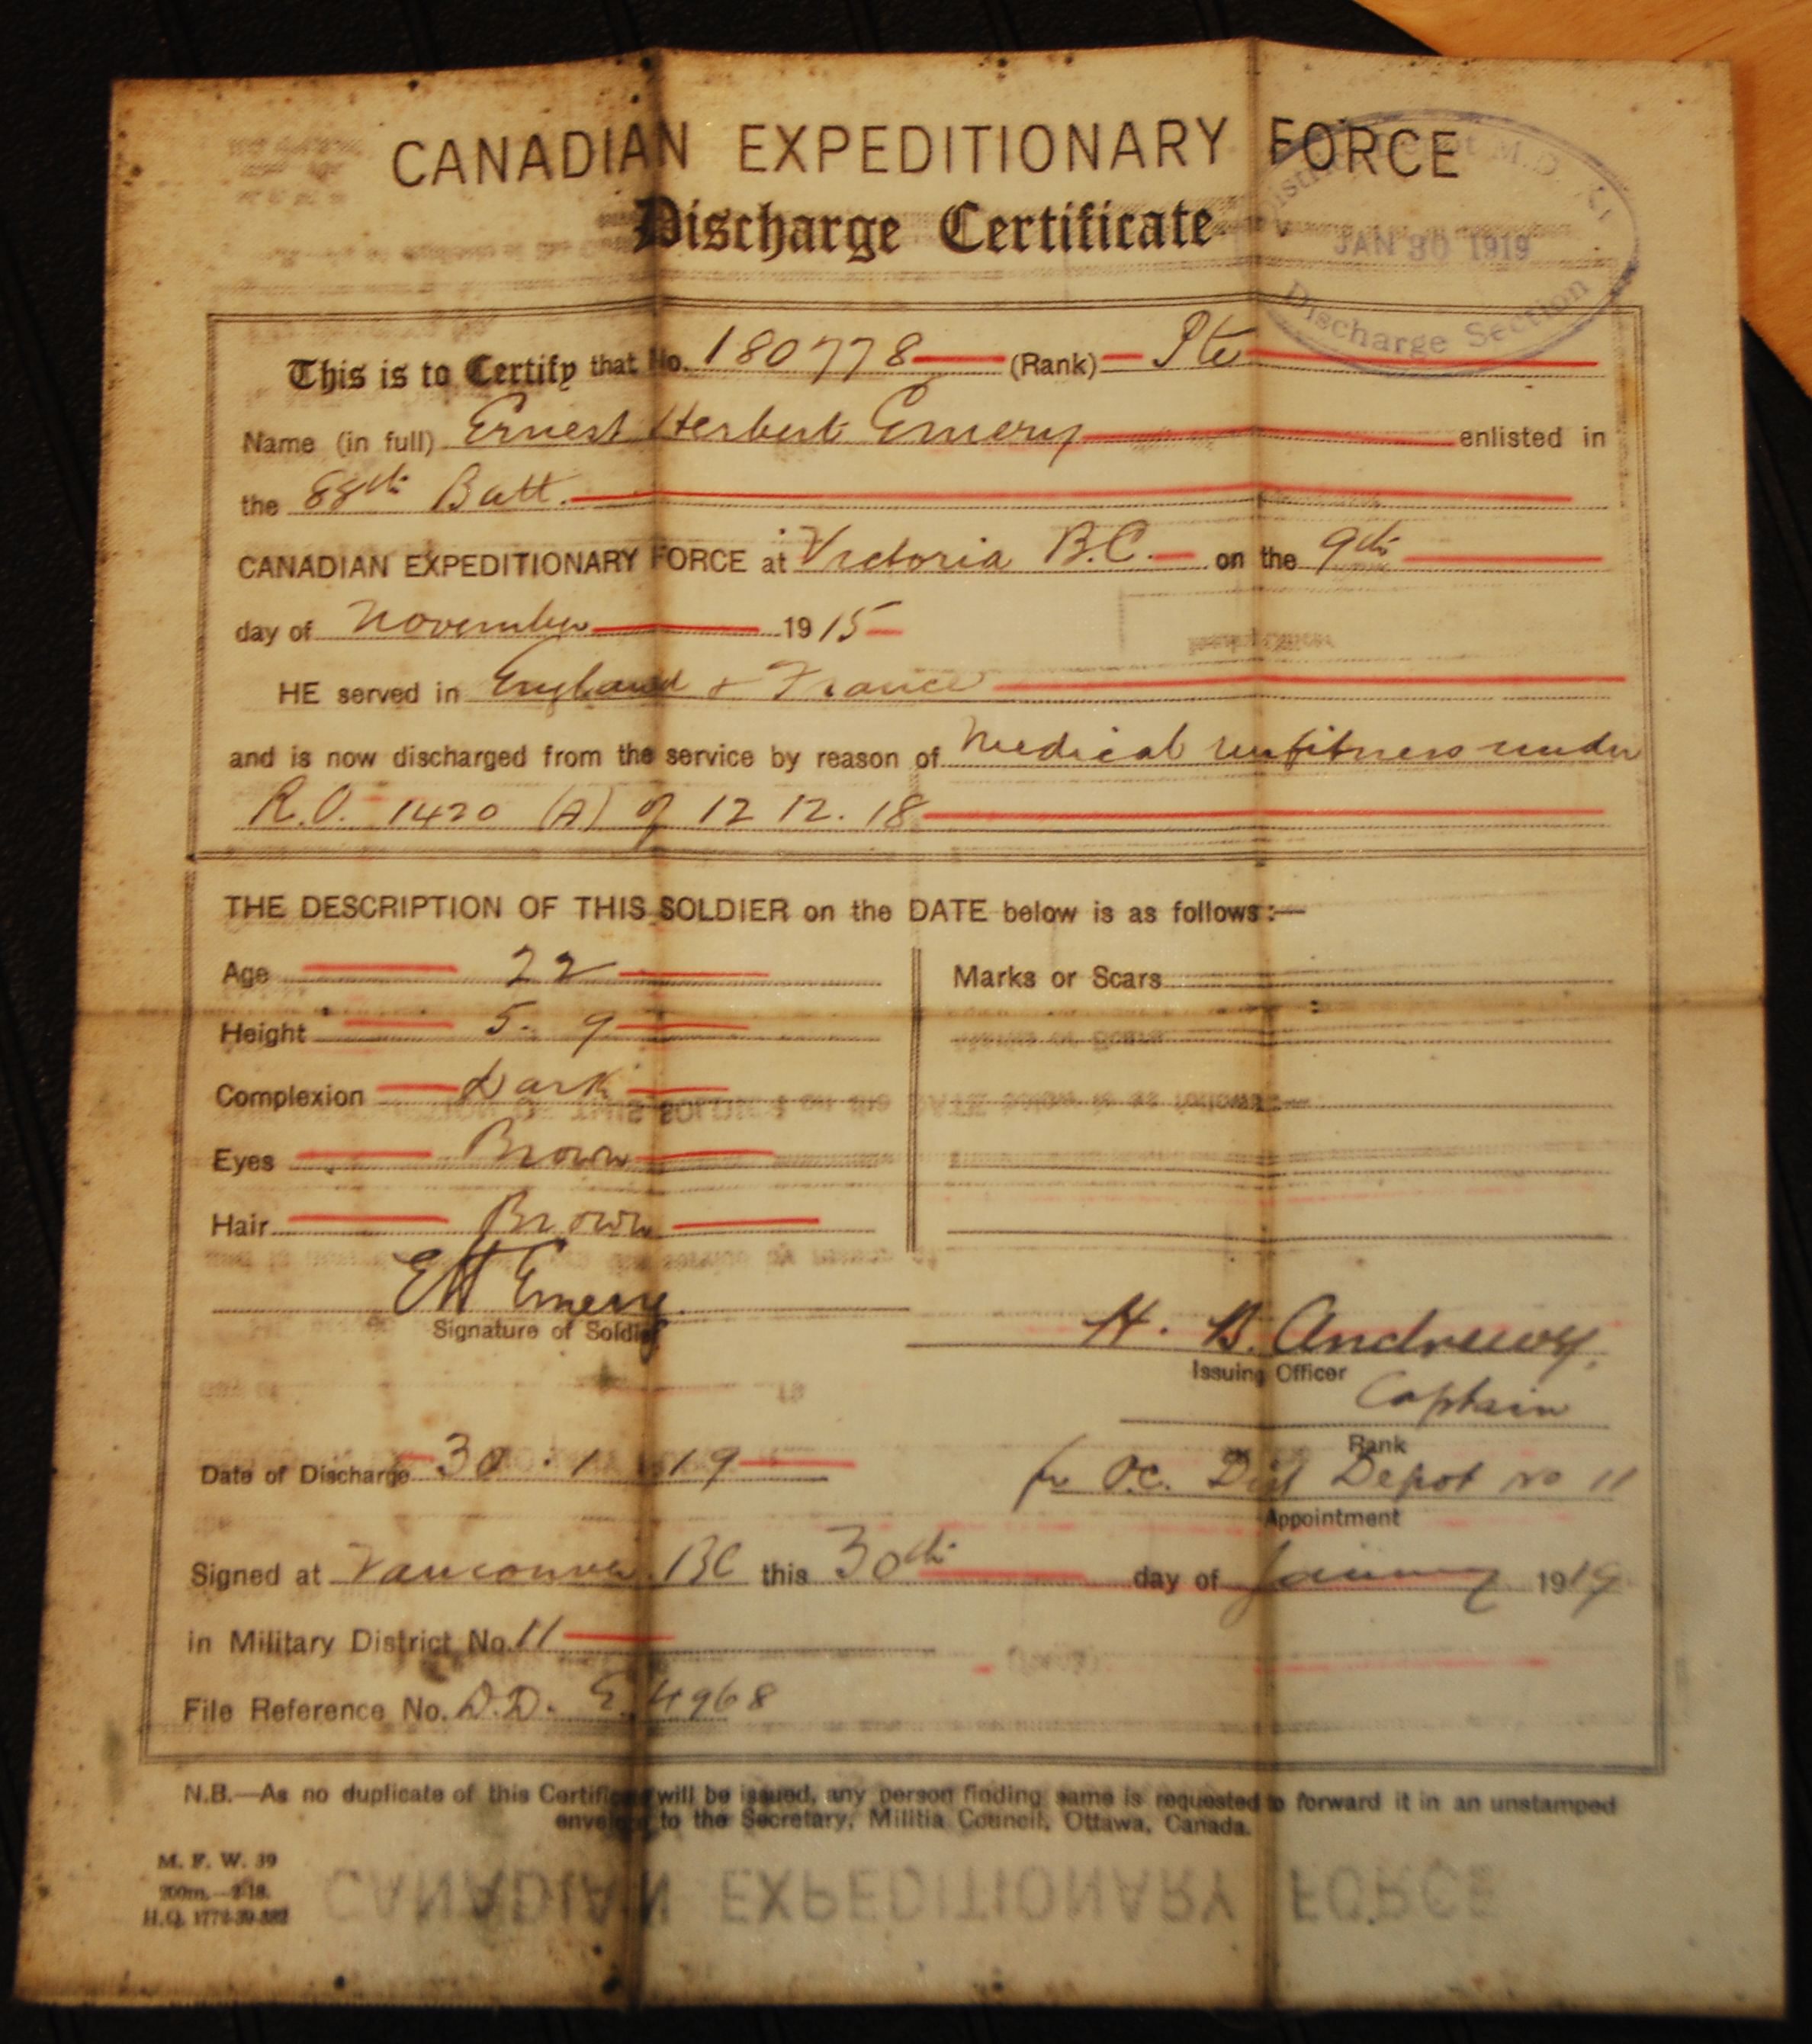 CANADIAN EXPEDITIONARY FORCE
Discharge Certificate
District Depot M.D. XI
JAN 30 1919
Discharge Section
This is to Certify that No. 180778 (Rank) Pte
Name (in full) Ernest Herbert Emery enlisted in
the 88th Batt.
CANADIAN EXPEDITIONARY FORCE at Victoria B.C. on the 9th
day of November 1915
HE served in England + France
and is now discharged from the service by reason of Medical unfitness under
R.O. 1420 (A) of 12 12. 18
THE DESCRIPTION OF THIS SOLDIER on the DATE below is as follows:—
Age 22
Height 5. 9
Complexion Dark
Eyes Brown
Hair Brown
Marks or Scars
EH Emery.
Signature of Soldier
H. B. Andrews.
Issuing Officer
Captain
Rank
for O.C. Dist Depot No 11
Appointment
Date of Discharge 30 . 1 19
Signed at Vancouver BC this 30th day of January 1919
in Military District No. 11
File Reference No. D.D. E. 4968
N.B.—As no duplicate of this Certificate will be issued, any person finding same is requested to forward it in an unstamped
envelope to the Secretary, Militia Council, Ottawa, Canada.
M. F. W. 39
200m.—2-18.
H.Q. 1772-39-882
CANADIAN EXPEDITIONARY FORCE